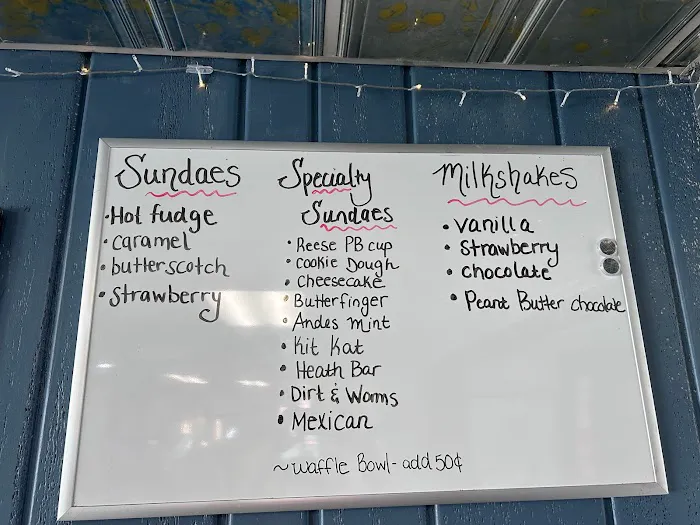 Sundaes
• Hot fudge
• caramel
• butterscotch
• Strawberry
Specialty
Sundaes
• Reese PB cup
• Cookie Dough
• Cheesecake
• Butterfinger
• Andes Mint
• Kit Kat
• Heath Bar
• Dirt & Worms
• Mexican
~ Waffle Bowl - add 50¢
Milkshakes
• Vanilla
• Strawberry
• chocolate
• Peant Butter chocolate